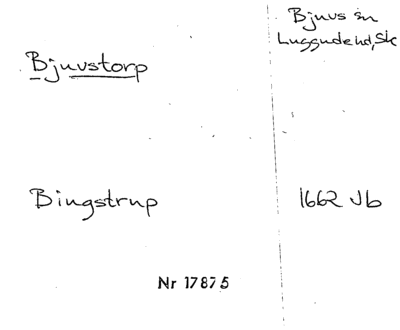 Bjuvs sn
Luggude hd, Sk
Bjuvstorp
Bingstrup
1662 Jb
Nr 17875